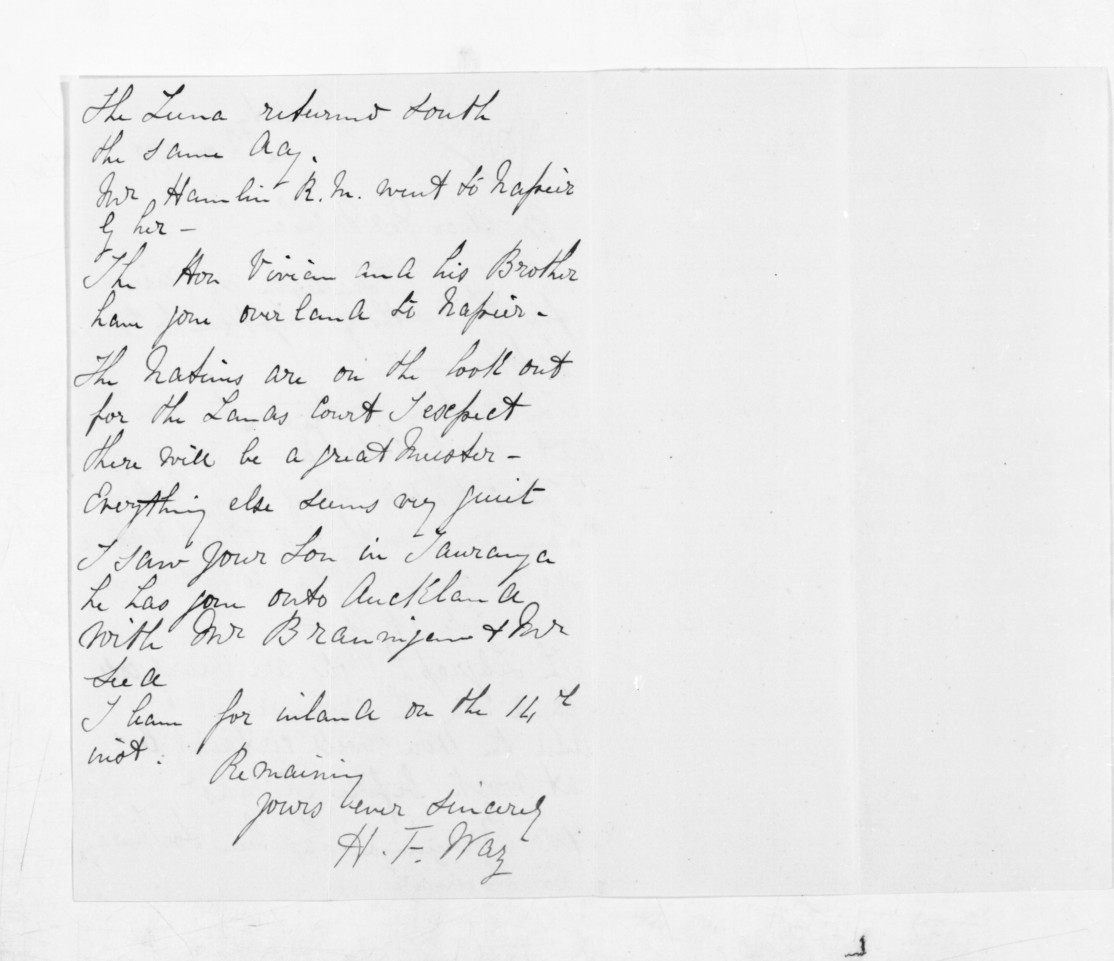 The Luna returned south
the same day.
Mr Hamlin R.M. went to Napier
by her –
The Hon Vivian and his Brother
have gone overland to Napier –
The Natives are on the look out
for the Lands Court I expect
there will be a great Muster –
Everything else seems very quiet
I saw your Son in Tauranga
he has gone onto Auckland
with Mr Brannigan & Mr
I leave for inland on the 14th
inst.
Remaining
yours ever sincerely
H. F. Way